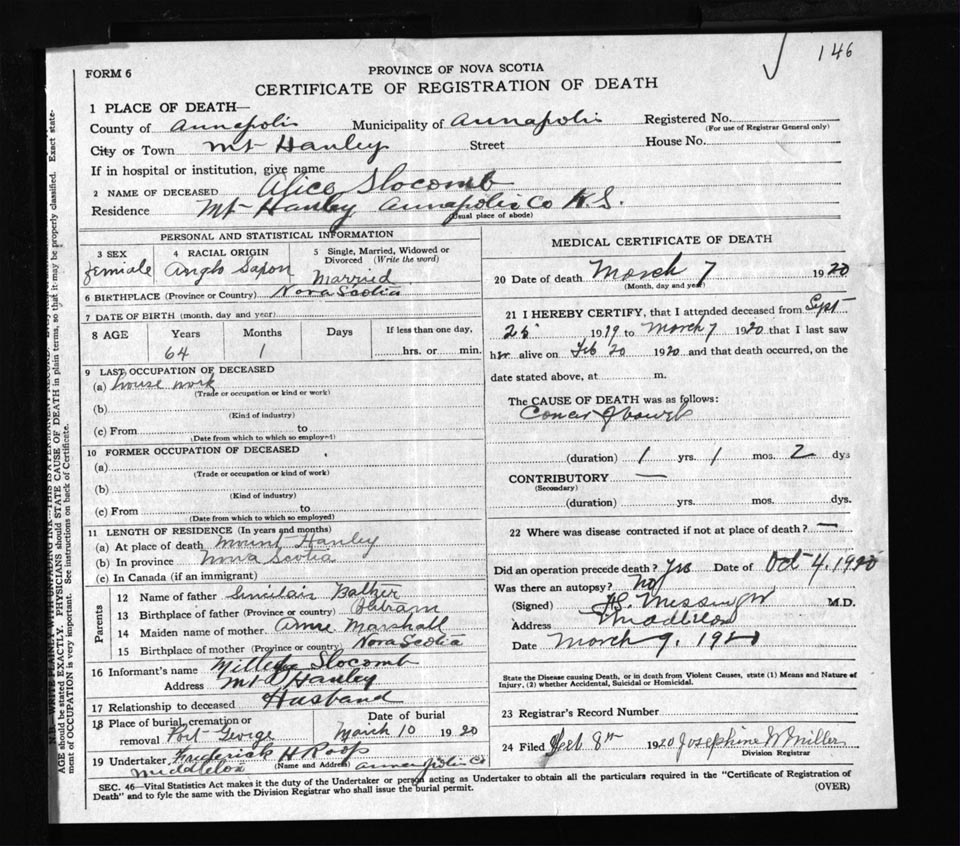 146
FORM 6
PROVINCE OF NOVA SCOTIA
CERTIFICATE OF REGISTRATION OF DEATH
1 PLACE OF DEATH—
County of Annapolis Municipality of Annapolis Registered No.
(For use of Registrar General only)
City or Town Mt Hanley Street House No.
If in hospital or institution, give name
2 NAME OF DECEASED Alice Slocomb
Residence Mt Hanley Annapolis Co N.S.
(Usual place of abode)
PERSONAL AND STATISTICAL INFORMATION
3 SEX 4 RACIAL ORIGIN 5 Single, Married, Widowed or Divorced (Write the word)
female Anglo Saxon Married
6 BIRTHPLACE (Province or Country) Nova Scotia
7 DATE OF BIRTH (month, day and year)
8 AGE Years Months Days If less than one day,
64 1 hrs. or min.
9 LAST OCCUPATION OF DECEASED
(a) house work
(Trade or occupation or kind or work)
(b)
(Kind of industry)
(c) From to
(Date from which to which so employed)
10 FORMER OCCUPATION OF DECEASED
(a)
(Trade or occupation or kind of work)
(b)
(Kind of industry)
(c) From to
(Date from which to which so employed)
11 LENGTH OF RESIDENCE (In years and months)
(a) At place of death Mount Hanley
(b) In province Nova Scotia
(c) In Canada (if an immigrant)
Parents
12 Name of father Balzer
13 Birthplace of father (Province or country)
14 Maiden name of mother Marshall
15 Birthplace of mother (Province or country) Nova Scotia
16 Informant's name Slocomb
Address Mt Hanley
17 Relationship to deceased Husband
18 Place of burial, cremation or removal Port George Date of burial March 10 1920
19 Undertaker Frederick H Roop
(Name and Address)
Middleton Annapolis Co
MEDICAL CERTIFICATE OF DEATH
20 Date of death March 7 1920
(Month, day and year)
21 I HEREBY CERTIFY, that I attended deceased from Sept
25 1919 to March 7 1920 that I last saw
her alive on Feb 20 1920 and that death occurred, on the
date stated above, at m.
The CAUSE OF DEATH was as follows:
Cancer of bowel
(duration) 1 yrs. 1 mos. 2 dys
CONTRIBUTORY —
(Secondary)
(duration) yrs. mos. dys.
22 Where was disease contracted if not at place of death? —
Did an operation precede death? Yes Date of Oct 4, 1920
Was there an autopsy? No
(Signed) Messinger M.D.
Address Middleton
Date March 9, 1920
State the Disease causing Death, or in death from Violent Causes, state (1) Means and Nature of
Injury, (2) whether Accidental, Suicidal or Homicidal.
23 Registrar's Record Number
24 Filed 8th 1920 Josephine W Miller
Division Registrar
SEC. 46—Vital Statistics Act makes it the duty of the Undertaker or person acting as Undertaker to obtain all the particulars required in the "Certificate of Registration of
Death" and to fyle the same with the Division Registrar who shall issue the burial permit. (OVER)
AGE should be stated EXACTLY. PHYSICIANS should STATE CAUSE OF DEATH in plain terms, so that it may be properly classified. Exact state-
ment of OCCUPATION is very important. See instructions on back of Certificate.